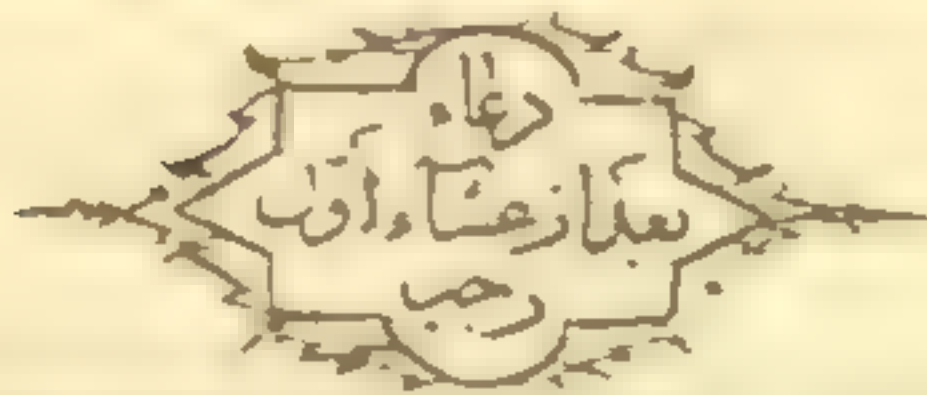 دعاء
بعد از عشاء اول
رجب